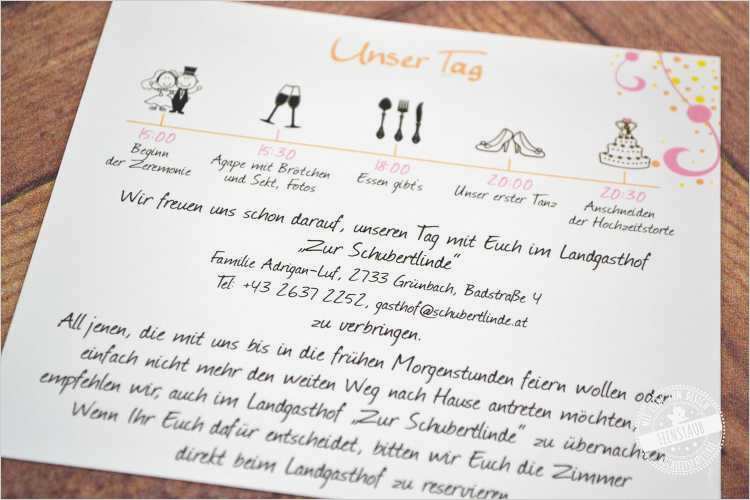 Unser Tag
15:00
Beginn
der Zeremonie
15:30
Agape mit Brötchen
und Sekt, Fotos
18:00
Essen gibt's
20:00
Unser erster Tanz
20:30
Anschneiden
der Hochzeitstorte
Wir freuen uns schon darauf, unseren Tag mit Euch im Landgasthof
„Zur Schubertlinde“
Familie Adrigan-Luf, 2733 Grünbach, Badstraße 4
Tel: +43 2637 2252, gasthof@schubertlinde.at
zu verbringen.
All jenen, die mit uns bis in die frühen Morgenstunden feiern wollen oder
einfach nicht mehr den weiten Weg nach Hause antreten möchten,
empfehlen wir, auch im Landgasthof „Zur Schubertlinde“ zu übernachten.
Wenn Ihr Euch dafür entscheidet, bitten wir Euch die Zimmer
direkt beim Landgasthof zu reservieren